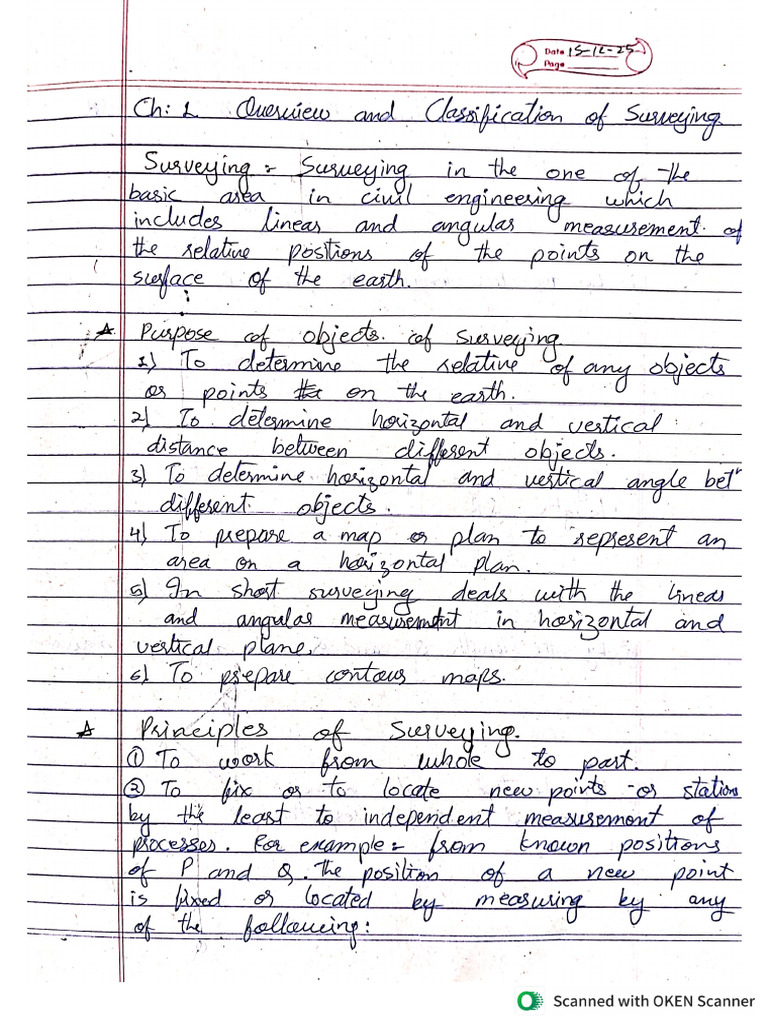 Date 15-12-25
Page
Ch: 1 Overview and Classification of Surveying
Surveying :- Surveying in the one of the
basic area in civil engineering which
includes linear and angular measurement of
the relative positions of the points on the
surface of the earth.
Purpose of objects of surveying
1) To determine the relative of any objects
or points on the earth.
2) To determine horizontal and vertical
distance between different objects.
3) To determine horizontal and vertical angle betn
different objects.
4) To prepare a map or plan to represent an
area on a horizontal plan.
5) In short surveying deals with the linear
and angular measurement in horizontal and
vertical plane.
6) To prepare contour maps.
Principles of Surveying.
① To work from whole to part.
② To fix or to locate new points or station
by the least to independent measurement of
processes. For example :- from known positions
of P and Q. The position of a new point
is fixed or located by measuring by any
of the following:
Scanned with OKEN Scanner